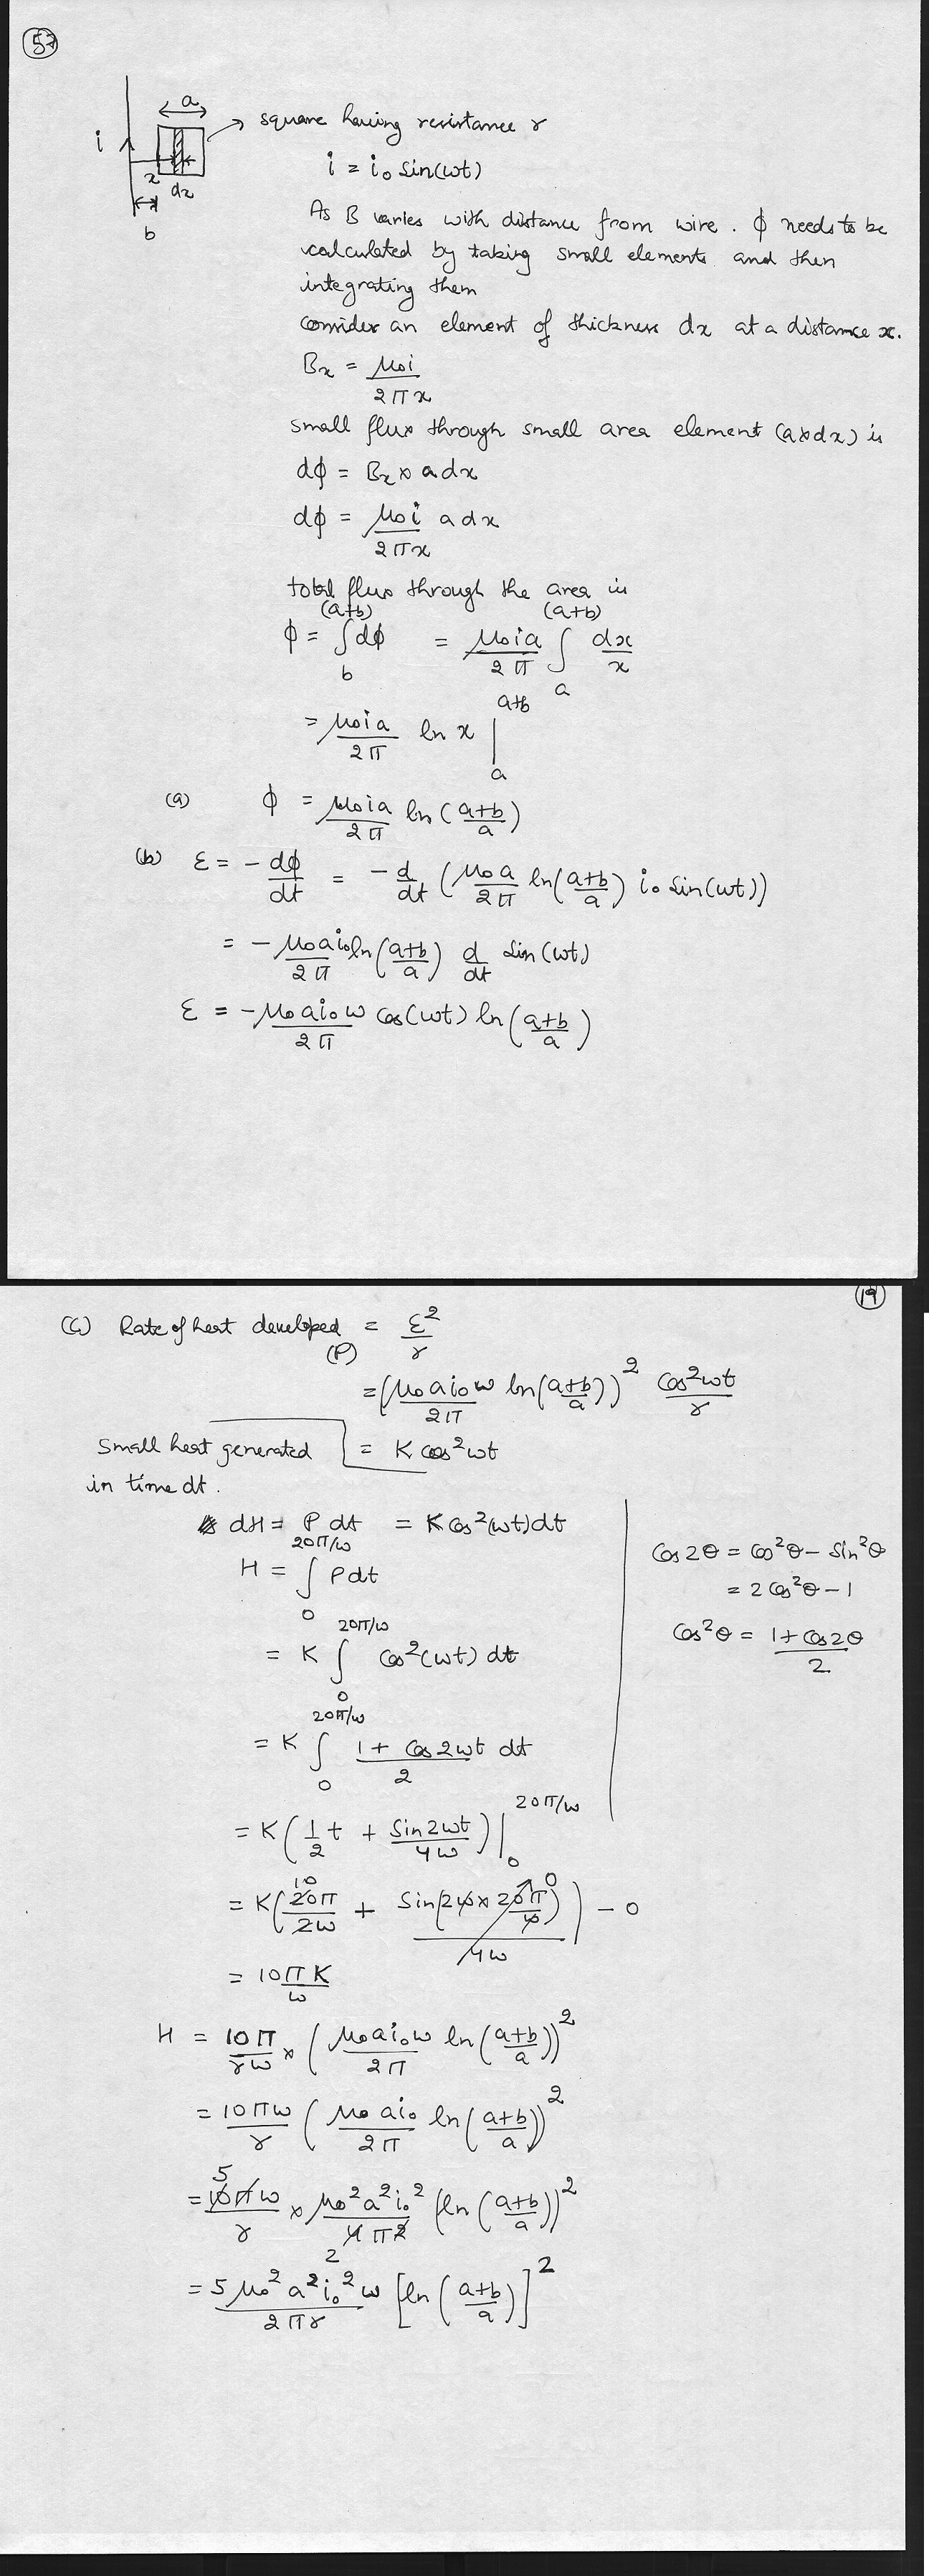 57
a
square having resistance r
i
i = i₀ sin(ωt)
x
dx
b
As B varies with distance from wire. ϕ needs to be
calculated by taking small elements and then
integrating them
consider an element of thickness dx at a distance x.
Bₓ = μ₀i / 2πx
small flux through small area element (a×dx) is
dϕ = Bₓ × a dx
dϕ = μ₀i / 2πx a dx
total flux through the area is
ϕ = ∫_b^(a+b) dϕ = μ₀ia / 2π ∫_a^(a+b) dx / x
= μ₀ia / 2π ln x |_a^a+b
(a) ϕ = μ₀ia / 2π ln(a+b / a)
(b) ε = -dϕ / dt = -d / dt (μ₀a / 2π ln(a+b / a) i₀ sin(ωt))
= -μ₀ai₀ / 2π ln(a+b / a) d / dt sin(ωt)
ε = -μ₀ai₀ω / 2π cos(ωt) ln(a+b / a)
19
(c) Rate of heat developed = ε² / r
(P)
= (μ₀ai₀ω / 2π ln(a+b / a))² cos²ωt / r
Small heat generated = K cos²ωt
in time dt.
dH = P dt = K cos²(ωt)dt
H = ∫_0^20π/ω P dt
= K ∫_0^20π/ω cos²(ωt) dt
= K ∫_0^20π/ω 1 + cos2ωt / 2 dt
= K(1/2 t + sin2ωt / 4ω)|_0^20π/ω
= K(20π / 2ω + sin(2ω × 20π / ω) / 4ω) - 0
10
0
= 10πK / ω
cos2θ = cos²θ - sin²θ
= 2cos²θ - 1
cos²θ = 1 + cos2θ / 2
H = 10π / rω × (μ₀ai₀ω / 2π ln(a+b / a))²
= 10πω / r (μ₀ai₀ / 2π ln(a+b / a))²
5
= 10πω / r × μ₀²a²i₀² / 4π² (ln(a+b / a))²
2
= 5μ₀²a²i₀²ω / 2πr [ln(a+b / a)]²